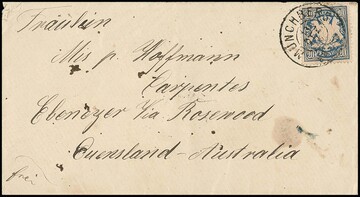 Fräulein
Mis p. Woffmann
Carpentes
Ebenezer Via Rosewood
Quensland-Australia
frei
MÜNCHBERG